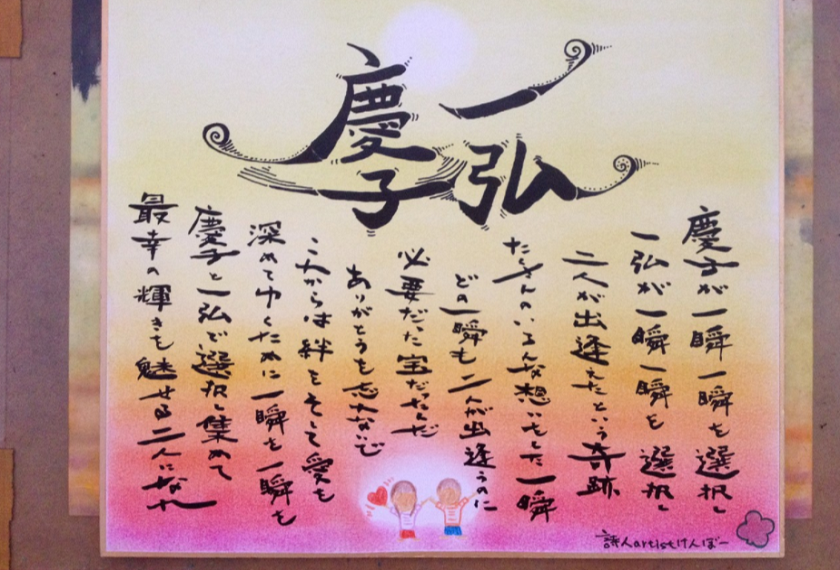 一弘
慶子
慶子が一瞬一瞬を選択し
一弘が一瞬一瞬を選択し
二人が出逢えたという奇跡
たくさんのいろんな想いをした一瞬
どの一瞬も二人が出逢うのに
必要だった宝だったんだ
ありがとうを忘れないで
これからは絆をそして愛を
深めてゆくために一瞬を一瞬を
慶子と一弘で選択し集めて
最幸の輝きを魅せる二人になれ
詩人artistけんぼー